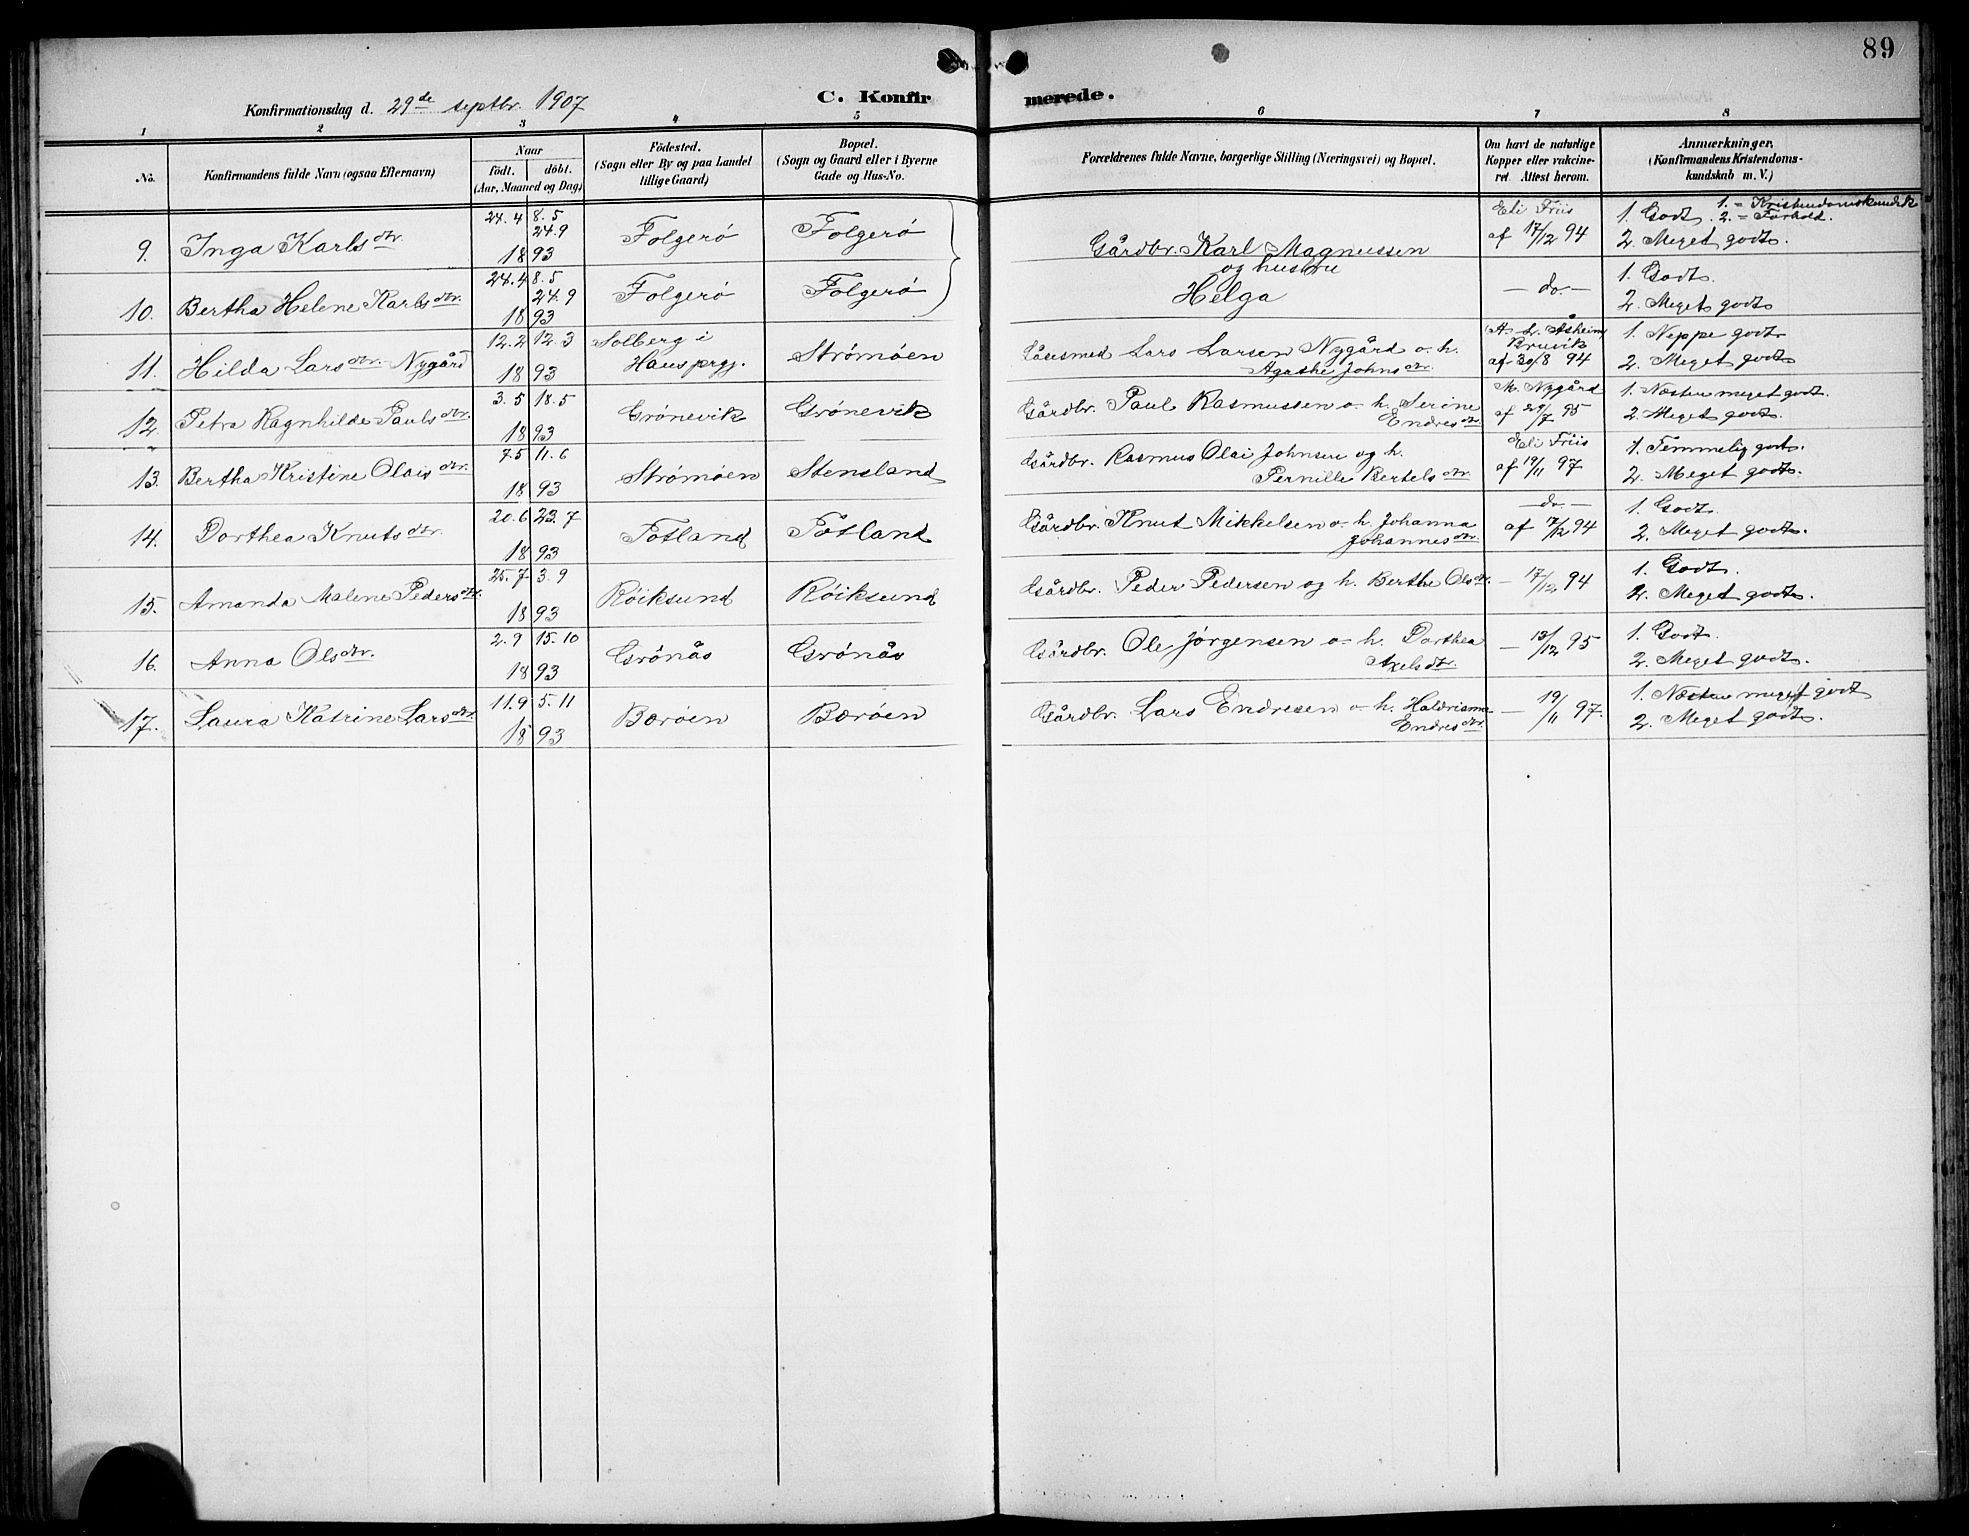 89
Konfirmationsdag d. 29de septbr. 1907
C. Konfirmerede.
1 2 3 4 5 6 7 8
No. Konfirmandens fulde Navn (ogsaa Efternavn) Naar født. døbt. (Aar, Maaned og Dag) Fødested. (Sogn eller By og paa Landet tillige Gaard) Bopæl. (Sogn og Gaard eller i Byerne Gade og Hus-No. Forældrenes fulde Navne, borgerlige Stilling (Næringsvei) og Bopæl. Om havt de naturlige Kopper eller vakcineret. Attest herom. Anmærkninger. (Konfirmandens Kristendomskundskab m. V.)
1. = Kristendomskundsk
2. = Forhold.
9. Inga Karlsdtr. 24.4 8.5 24.9 1893 Folgerø Folgerø Gårdbr. Karl Magnussen og hustru Helga Eli Friis af 17/12 94 1. Godt. 2. Meget godt.
10. Bertha Helene Karlsdtr. 24.4 8.5 24.9 1893 Folgerø Folgerø — do. — 1. Godt. 2. Meget godt
11. Hilda Larsdtr. Nygård 12.2 12.3 1893 Solberg i Haus prgj. Strømøen Låsesmed Lars Larsen Nygård o. h. Agathe Johnsdtr. A. L. Åsheim, Bruvik af 30/8 94 1. Neppe godt 2. Meget godt
12. Petra Ragnhilde Paulsdtr. 3.5 18.5 1893 Grønevik Grønevik Gårdbr. Paul Rasmussen o. h. Serine Endresdtr. M. Nygård af 29/7 95 1. Næsten meget godt. 2. Meget godt.
13. Bertha Kristine Olaisdtr. 7.5 11.6 1893 Strømøen Stensland Gårdbr. Rasmus Olai Johnsen og h. Pernille Bertelsdtr. Eli Friis af 19/11 97 1. Temmelig godt. 2. Meget godt.
14. Dorthea Knutsdtr. 20.6 23.7 1893 Totland Totland Gårdbr. Knut Mikkelsen o. h. Johanna Johannesdtr. — do — af 17/12 94 1. Godt. 2. Meget godt.
15. Amanda Malene Pedersdtr. 25.7 3.9 1893 Røiksund Røiksund Gårdbr. Peder Pedersen og h. Berthe Olsdtr. — 17/12 94 1. Godt. 2. Meget godt.
16. Anna Olsdtr. 2.9 15.10 1893 Grønås Grønås Gårdbr. Ole Jørgensen o. h. Dorthea Axelsdtr. — 13/12 95 1. Godt. 2. Meget godt.
17. Laura Katrine Larsdtr. 11.9 5.11 1893 Bærøen Bærøen Gårdbr. Lars Endresen o. h. Haldrianna Endresdtr. — 19/11 97. 1. Næsten meget godt 2. Meget godt.